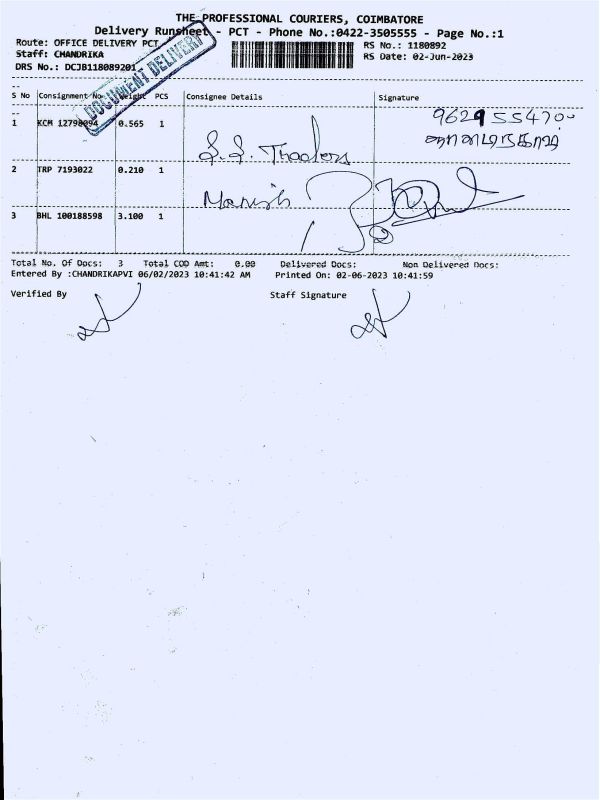 THE PROFESSIONAL COURIERS, COIMBATORE
Delivery Runsheet - PCT - Phone No.:0422-3505555 - Page No.:1
Route: OFFICE DELIVERY PCT
RS No.: 1180892
Staff: CHANDRIKA
RS Date: 02-Jun-2023
DRS No.: DCJB118089201
DOCUMENT DELIVERY
S No Consignment No Weight PCS Consignee Details Signature
1 KCM 12798094 0.565 1 S.S. Traders
2 TRP 7193022 0.210 1 Manish
3 BHL 100188598 3.100 1
Total No. Of Docs: 3 Total COD Amt: 0.00 Delivered Docs: Non Delivered Docs:
Entered By :CHANDRIKAPVI 06/02/2023 10:41:42 AM Printed On: 02-06-2023 10:41:59
Verified By Staff Signature